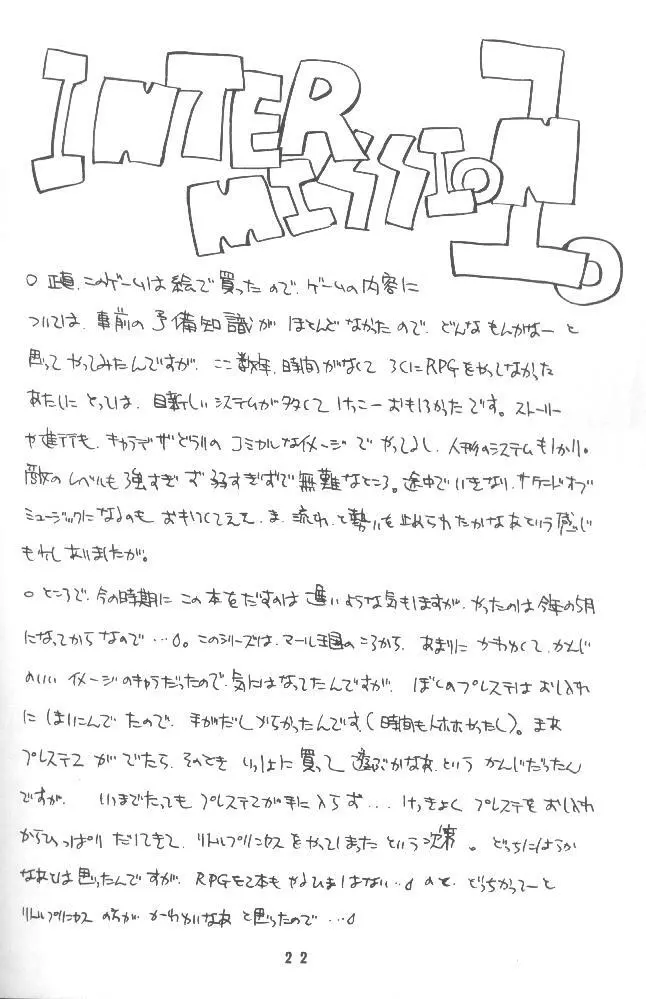 INTER
MISSION
フNエo
○ 正直、このゲームは絵で買ったので、ゲームの内容に
ついては、事前の予備知識がほとんどなかったので、どんなもんかなーと
思ってやってみたんですが、ここ数年、時間がなくてろくにRPGをやってなかった
あたしにとっては、目新しいシステムが多くてけっこーおもしろかったです。ストーリー
や進行も、キャラデザどうりのコミカルなイメージで
敵のレベルも強すぎず弱すぎずで無難なところ。途中でいきなり、
ミュージックになるのも 流れと勢いを止められたかなあという感じ
もしましたが。
○ ところで、今の時期にこの本をだすのは遅いような気もしますが、やったのは今年の5月
になってからなので…。このシリーズは、マール王国のころから、あまりにかわいくて、かんじ
のいいイメージのキャラだったので、気にはなってたんですが、ぼくのプレステはおしいれ
にはいってたので、手がだしづらかったんです(時間もなかったし)。まあ
プレステ2がでたら、そのときいっしょに買って遊ぶかなあ、というかんじだったん
ですが、いつまでたってもプレステ2が手に入らず…けっきょくプレステをおしいれ
からひっぱりだしてきて、リトルプリンセスをやってしまったという次第。どっちにしようか
なあとは思ったんですが、RPGを2本もやるひまはない…ので、どっちかってーと
リトルプリンセスのほうがかーわいいなあと思ったので…
22